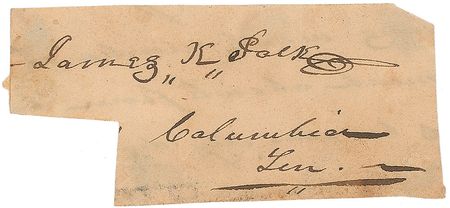 James K Polk
Columbia
Ten.